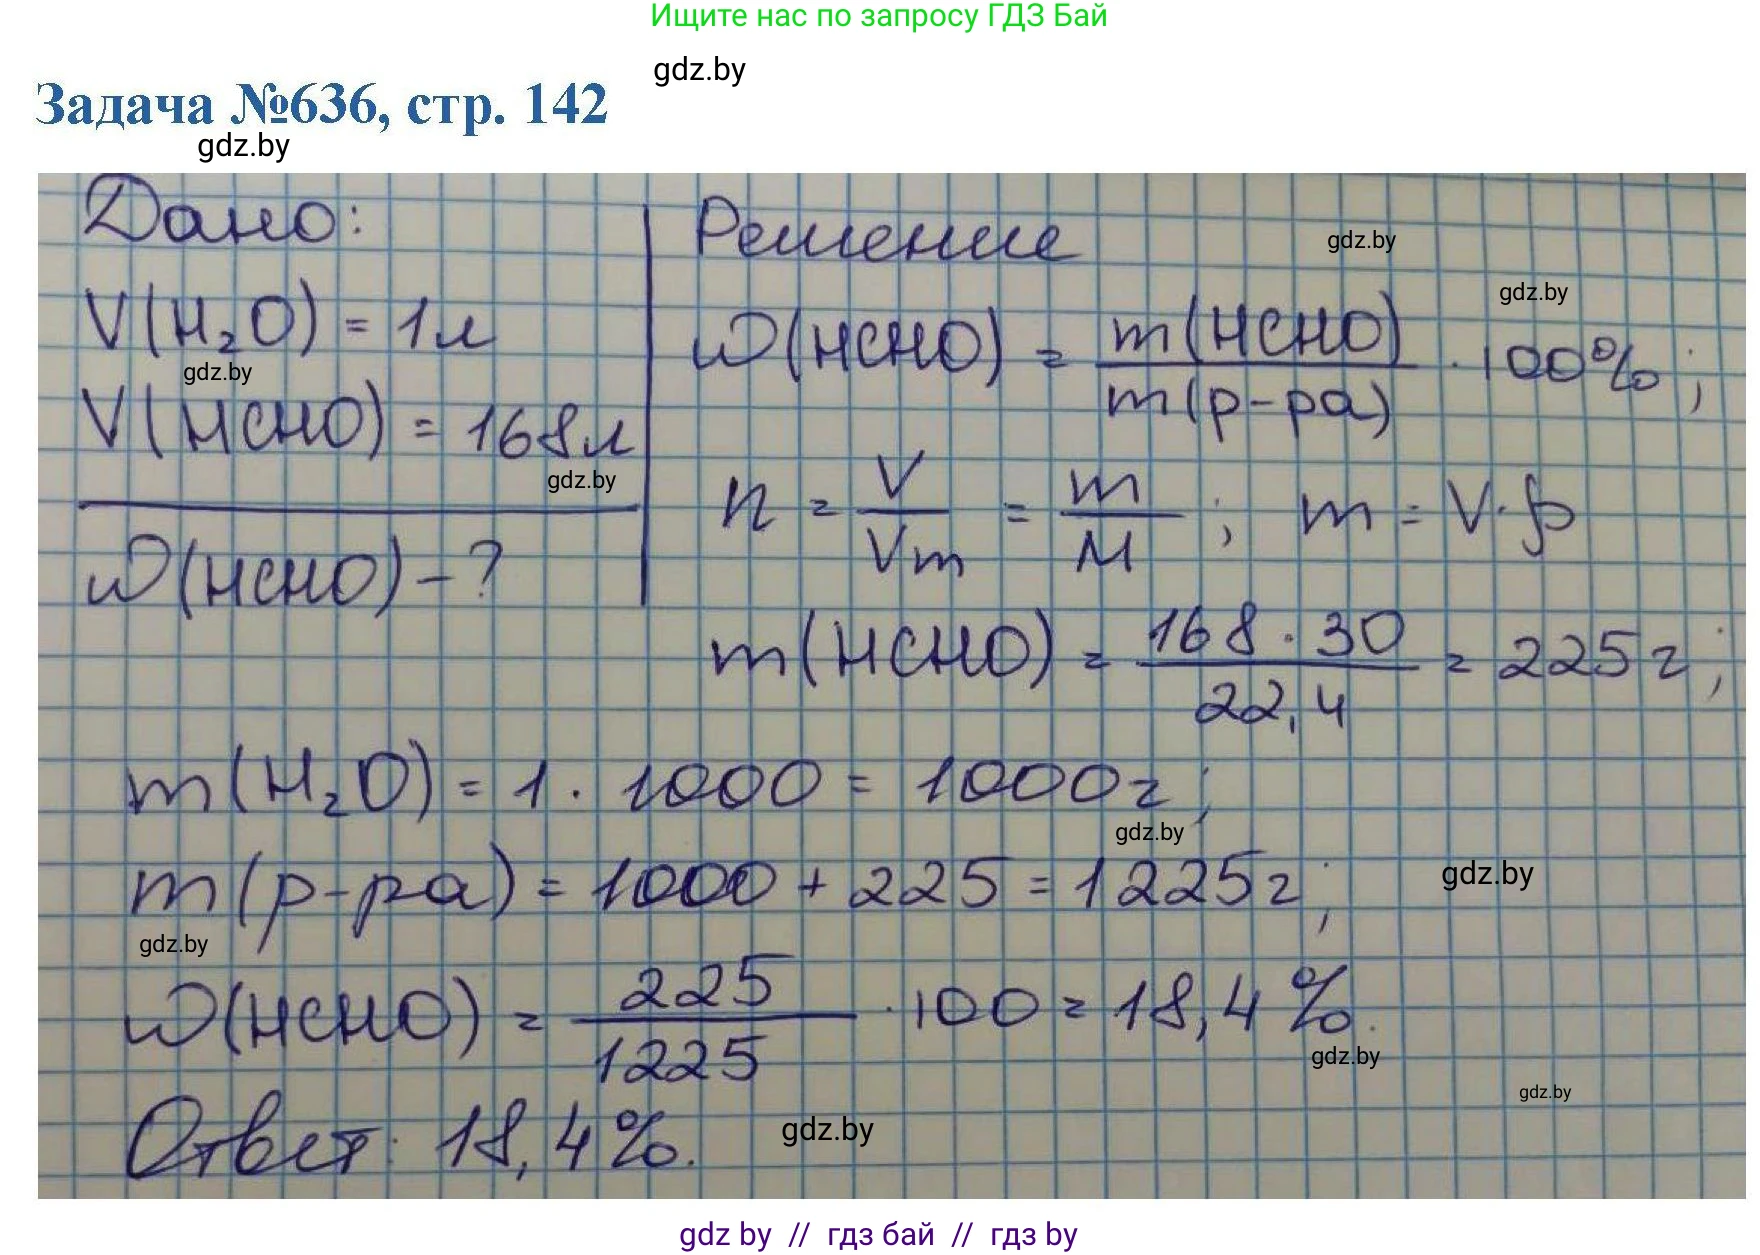 Ищите нас по запросу ГДЗ Бай
gdz.by
Задача №636, стр. 142
gdz.by
Дано:
V(H₂O) = 1л
gdz.by
V(HCHO) = 168л
gdz.by
ω(HCHO) - ?
Решение
gdz.by
gdz.by
ω(HCHO) = m(HCHO) / m(р-ра) · 100%;
n = V / Vm = m / M ; m = V · ρ
m(HCHO) = 168 · 30 / 22,4 = 225г;
m(H₂O) = 1 · 1000 = 1000г;
gdz.by
m(р-ра) = 1000 + 225 = 1225г;
gdz.by
gdz.by
ω(HCHO) = 225 / 1225 · 100 = 18,4%.
gdz.by
gdz.by
Ответ: 18,4%.
gdz.by
gdz by // гдз бай // гдз by